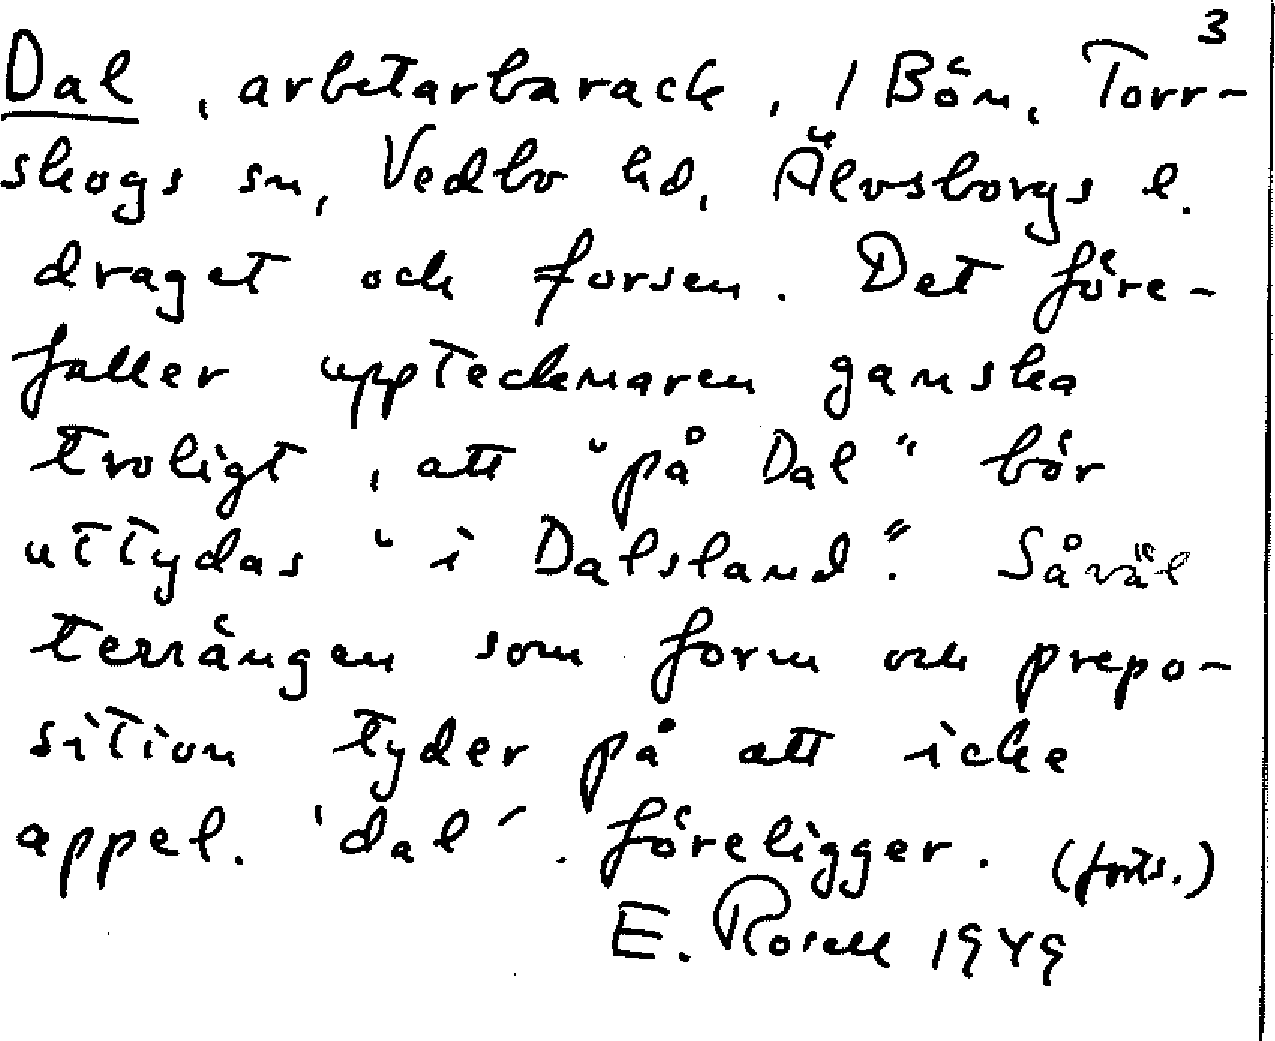 3
Dal, arbetarbarack, 1 Bön, Torr-
skogs sn, Vedbo hd, Älvsborgs l.
draget och forsen. Det före-
faller upptecknaren ganska
troligt, att "på Dal" bör
uttydas "i Dalsland". Såväl
terrängen som form och prepo-
sition tyder på att icke
appel. 'dal'. föreligger. (forts.)
E. Rosell 1949